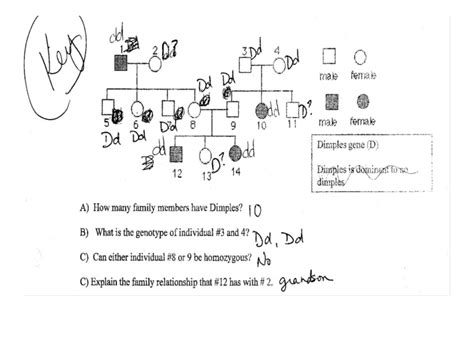 Key
dd
1
2
D?
3
Dd
4
Dd
Dd
Dd
male
female
5
Dd
6
Dd
7
D?d
8
9
10
dd
11
D?
male
female
dd
12
13
D?
14
dd
Dimples gene (D)
Dimples is dominant to no
dimples
A) How many family members have Dimples? 10
B) What is the genotype of individual #3 and 4? Dd, Dd
C) Can either individual #8 or 9 be homozygous? No
C) Explain the family relationship that #12 has with # 2. grandson